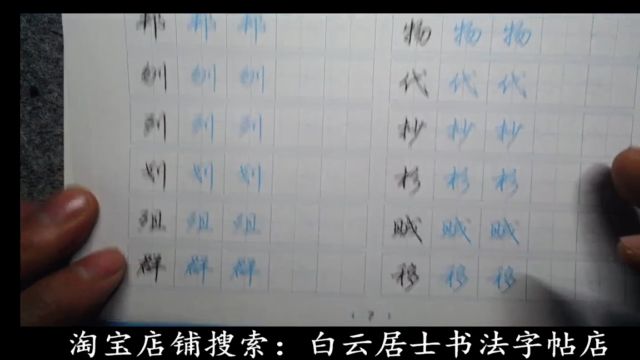 邦 邦 邦
物 物 物
代 代 代
抄 抄 抄
划 划 划
杉 杉 杉
组 组 组
贼 贼 贼
群 群 群
移 移 移
淘宝店铺搜索：白云居士书法字帖店